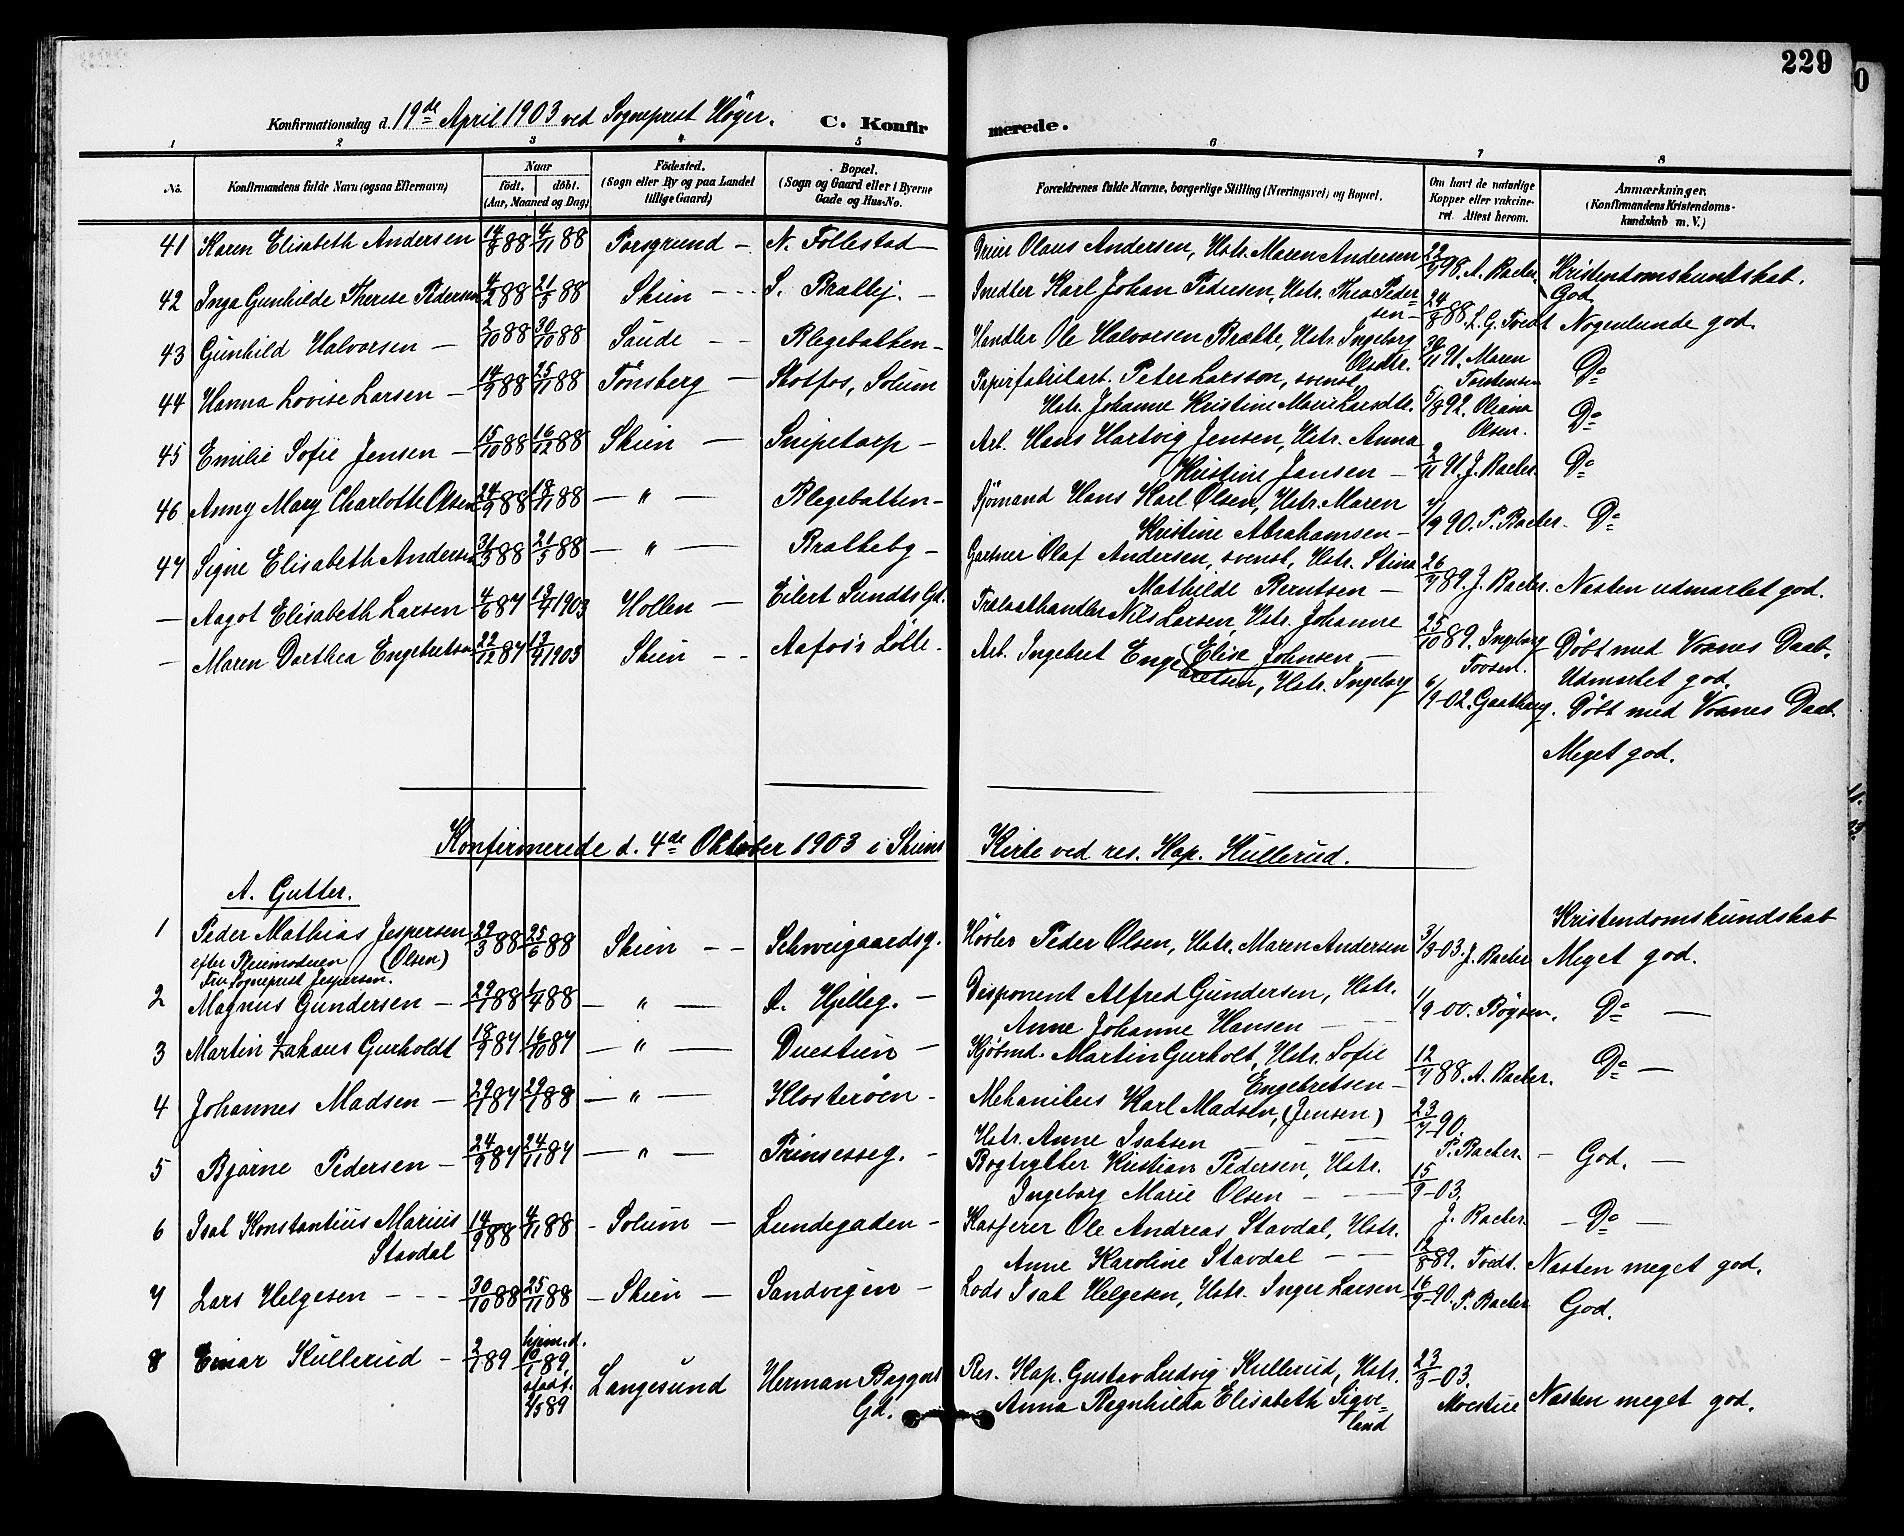 229
Konfirmationsdag d. 19de April 1903 ved Sogneprest Høyer. C. Konfirmerede.
1 2 3 4 5 6 7 8
No. Konfirmandens fulde Navn (ogsaa Efternavn) Naar født. døbt. (Aar, Maaned og Dag) Fødested. (Sogn eller By og paa Landet tillige Gaard) Bopæl. (Sogn og Gaard eller i Byerne Gade og Hus-No. Forældrenes fulde Navne, borgerlige Stilling (Næringsvei) og Bopæl. Om havt de naturlige Kopper eller vakcineret. Attest herom. Anmærkninger. (Konfirmandens Kristendomskundskab m. V.)
41 Karen Elisabeth Andersen 14/8 88 4/11 88 Porsgrund - N. Follestad - Dreier Olaus Andersen, Hstr. Maren Andersen 22/7 98. A. Backer. Kristendomskundskab. God.
42 Inga Gunhilde Therese Pedersen 4/2 88 21/5 88 Skien - - S. Brattbj. - Snedker Karl Johan Pedersen, Hstr. Thea Pedersen - 24/8 88. L. G. Tvedt Nogenlunde god.
43 Gunhild Halvorsen - 2/10 88 30/10 88 Saude - - Blegebakken - Handler Ole Halvorsen Brække, Hstr. Ingeborg Olsdtr. 30/11 91. Maren Torstensen Do
44 Hanna Lovise Larsen - 14/9 88 25/11 88 Tønsberg - Skotfos, Solum Papirfabrikarb. Peter Larsson, svensk, Hstr. Johanne Kristine Marie Larsdtr. 5/8 92. Oleana Olsen. Do
45 Emilie Sofie Jensen - 15/10 88 16/12 88 Skien - Snipetorp - Arb. Hans Hartvig Jensen, Hstr. Anna Kristine Jansen - 2/11 91. J. Backer Do
46 Anny Mary Charlotte Olsen 24/9 88 18/11 88 - " - Blegebakken - Sjømand Hans Karl Olsen, Hstr. Maren Kristine Abrahamsen - 4/9 90. P. Backer - Do
47 Signe Elisabeth Andersen 31/3 88 21/5 88 - " - Brattebg - Gartner Olaf Andersen, svensk, Hstr. Stina Mathilde Berntsen - 26/7 89. J. Backer. Næsten udmærket god.
- Aagot Elisabeth Larsen 4/6 87 13/4 1903 Hollen - Eilert Sundts Gd. Trælasthandler Nils Larsen, Hstr. Johanne Elise Johnsen - 25/10 89. Ingeborg Tovsen. Døbt med Voxnes Daab. Udmærket god.
- Maren Dorthea Engebretsen 22/12 87 13/4 1903 Skien - - Aafos's Løkke - Arb. Ingebret Engebretsen, Hstr. Ingeborg 6/9-02. Gaathaug. Døbt med Voxnes Daab. Meget god.
Konfirmerede d. 4de Oktober 1903 i Skiens Kirke ved res. Kap. Kullerud.
A. Gutter.
1 Peder Mathias Jespersen (Olsen) 29/3 88 25/6 88 Skien - - Schweigaardsg. Høvler Peder Olsen, Hstr. Maren Andersen 3/9-03. J. Backer Kristendomskundskab Meget god.
efter Pleiemoderen
Fru Sogneprest Jespersen.
2 Magnus Gundersen - 29/1 88 1/4 88 - " - S. Hjelleg. - Disponent Alfred Gundersen, Hstr. Anne Johanne Hansen - 1/9-00. Bøgsen. Do -
3 Martin Zakæus Gurholdt 18/9 87 16/10 87 - " - Duestien - Kjøbmd. Martin Gurholt, Hstr. Sofie Engebretsen - 12/7 88. A. Backer. Do -
4 Johannes Madsen - 29/1 87 29/1 88 - " - Klosterøen - Mekanikus Karl Madsen, (Jensen) Hstr. Anne Isaksen 23/7-90. P. Backer.
5 Bjarne Pedersen - 24/9 87 24/11 87 - " - Prinsesseg. - Bogtrykker Kristian Pedersen, Hstr. Ingeborg Marie Olsen - 15/9-03. J. Backer - God. -
6 Isak Konstantius Marius Stavdal 14/9 88 4/11 88 - Solum - Lundegaden - Kasserer Ole Andreas Stavdal, Hstr. Anne Karoline Stavdal - - 12/8 89. Tvedt. - Do -
7 Lars Helgesen - - - 30/10 88 25/11 88 - Skien - Sandvigen - Lods Isak Helgesen, Hstr. Inger Larsen 16/9-90. P. Backer Næsten meget god. God.
8 Einar Kullerud - 2/1 89 hjem.d. 10/1 89, stadf. 4/5 89 Langesund Herman Baggers Gd. Res. Kap. Gustav Ludvig Kullerud, Hstr. Anna Ragnhilda Elisabeth Sigveland 23/3-03. Moestue Næsten meget god.